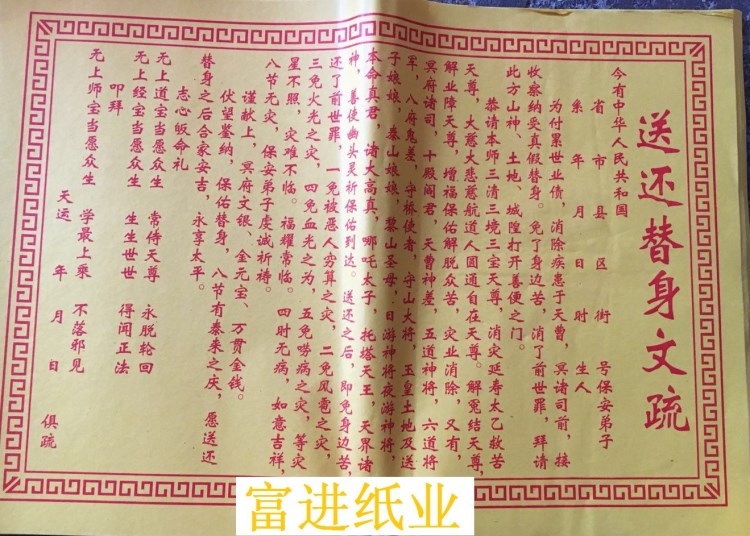 送还替身文疏
今有中华人民共和国
省 市 县 区 街 号保安弟子
系 年 月 日 时 生人
为付累世业债，消除疾患于天曹，冥诸司前，接
收察纳受真假替身。免了身边苦，消了前世罪，拜请
此方山神、土地、城隍打开善便之门。
恭请本师三清三境三宝天尊，消灾延寿太乙救苦
天尊，大慈大悲慈航道人圆通自在天尊。解冤结天尊，
解业障天尊，增福保佑解脱众苦，灾业消除，又有，
冥府诸司，十殿阎君，天曹神差，五道神将，六道将
军，八府鬼差，守桥使者，守山大将，玉皇土地及送
子娘娘，泰山娘娘，黎山圣母，日游神将夜游神将，
本命真君，诸大高真，哪吒太子，托塔天王，天界诸
神，善使幽头灵祈保佑到达。送还之后，即免身边苦，
还了前世罪，一免被恶人穷算之灾，二免风雹之灾，
三免火光之灾，四免血光之为，五免唠病之灾，等灾
星不照，灾难不临。福耀常临。四时无病，如意吉祥，
八节无灾，保安弟子虔诚祈祷。
谨献上，冥府文银、金元宝、万贯金钱。
伏望鉴纳，保佑替身，八节有泰来之庆，愿送还
替身之后合家安吉，永享太平。
志心皈命礼
无上道宝当愿众生 常侍天尊 永脱轮回
无上经宝当愿众生 生生世世 得闻正法
叩拜
无上师宝当愿众生 学最上乘 不落邪见
天运 年 月 日 俱疏
富进纸业